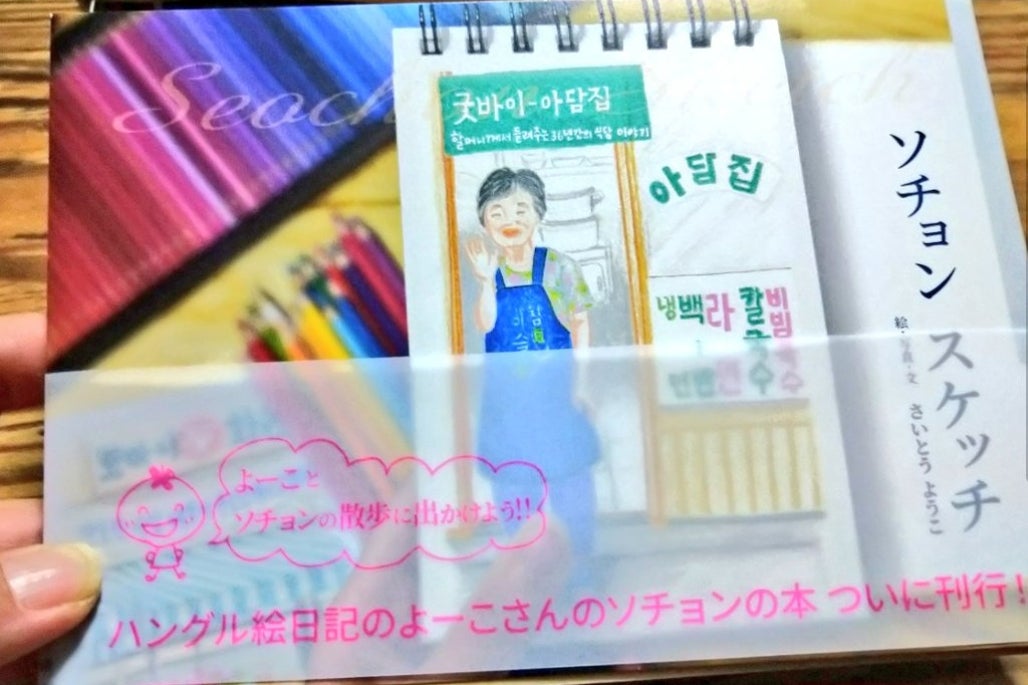 Seoch
굿바이-아담집
할머니께서 들려주는 36년간의 식당 이야기
아담집
비빔국수
칼국수
라면
백반
냉
ソチョン スケッチ
絵・写真・文 さいとう ようこ
よーこと
ソチョンの散歩に出かけよう!!
ハングル絵日記のよーこさんのソチョンの本 ついに刊行!